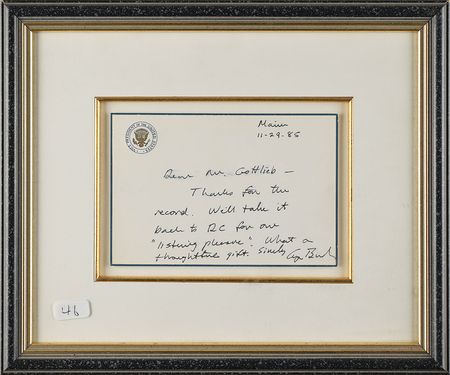 Maine
11-29-85
Dear Mr. Gottlieb —
Thanks for the
record. We'll take it
back to DC for our
"listening pleasure". What a
thoughtful gift. Sincerely
46